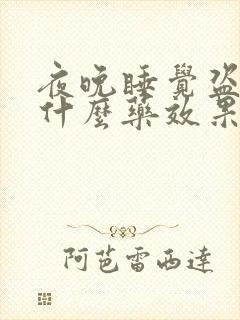 夜晚睡覺盜
什麼藥效果
阿芭雷西達